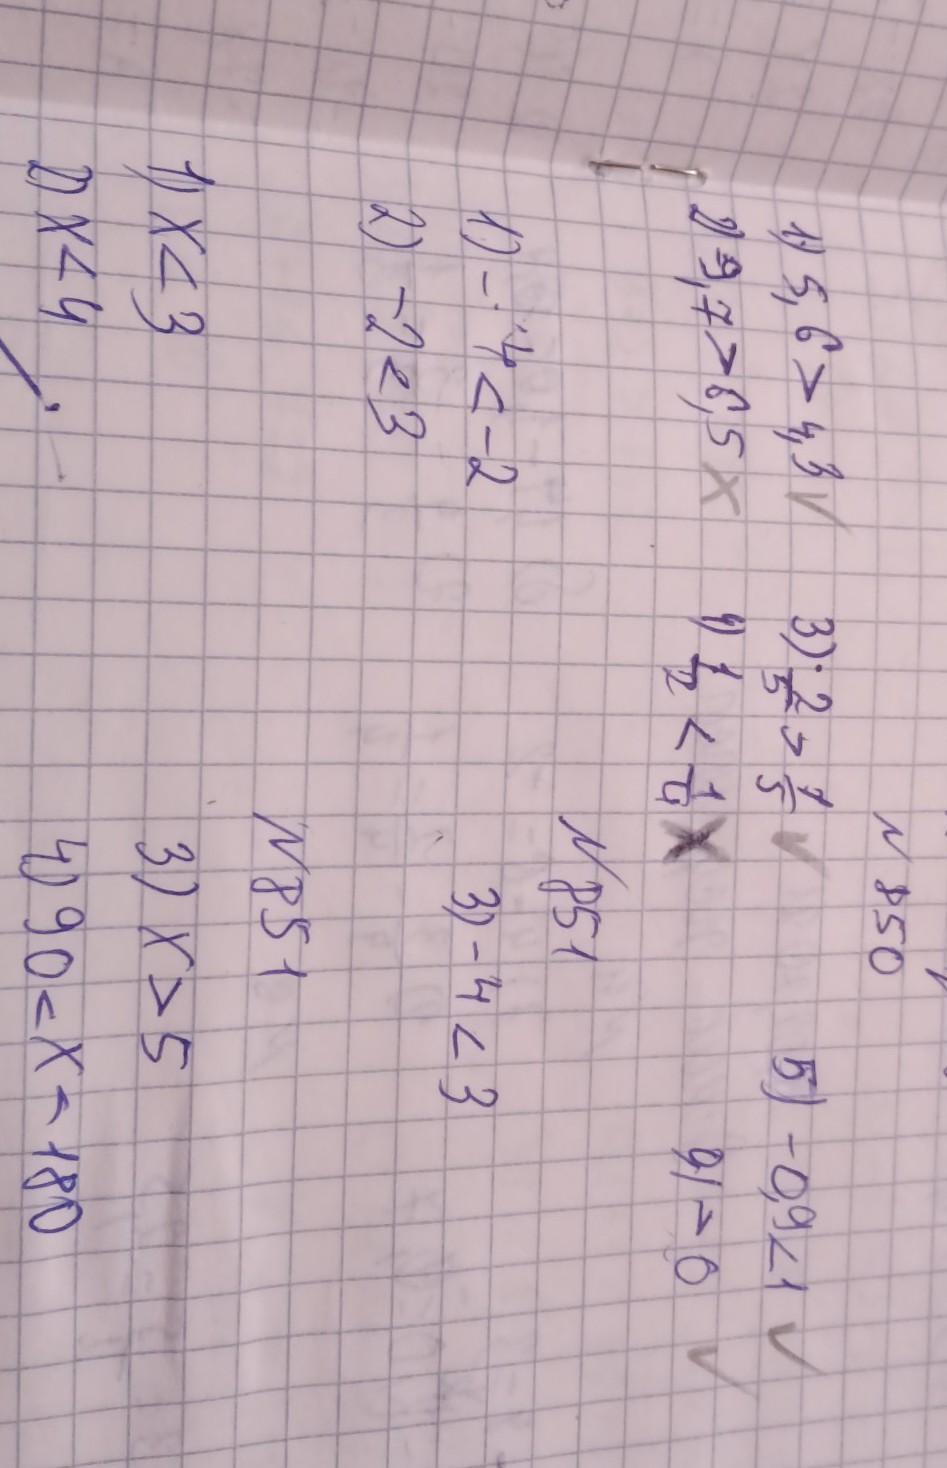 N 850
1) 5,6 > 4,3 ✓ 3) 2/5 > 1/5 ✓ 5) -0,9 < 1 ✓
2) -9,7 > 6,5 × 4) 1/2 < 1/4 × > 0 ✓
N 851
1) -4 < -2 3) -4 < 3
2) -2 < 3
N 851
1) x < 3 3) x > 5
2) x < 4 4) 90 < x < 180